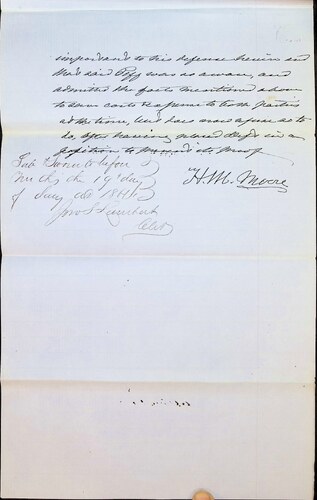 important to his defense herein and
that said Plff was so aware, and
admitted the facts mentioned above
to save costs & expense to both parties
at the time, but does now refuse so to
do, after having placed Deft in a
position to his proof
H. M. Moore
Sub & Sworn to before
me this the 19th day
of July AD 184
Jno S
Clerk